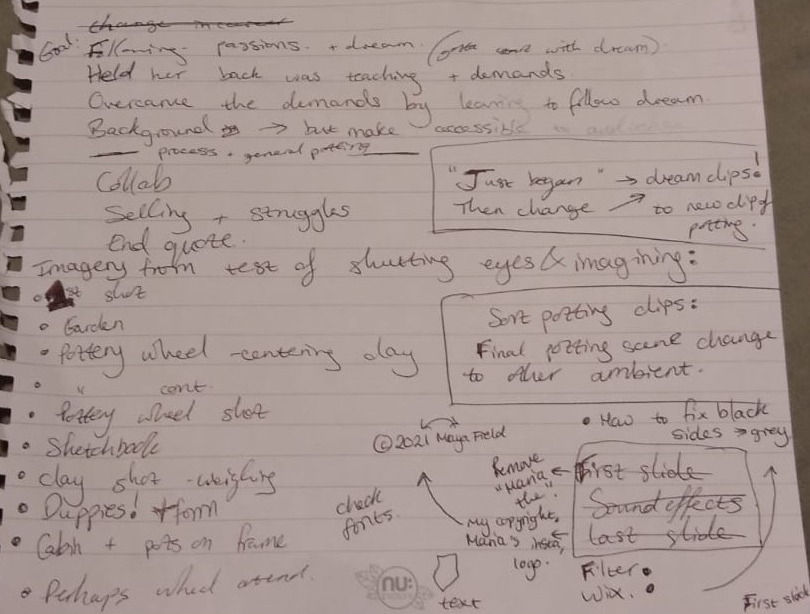 change in career
Goal: Filming. passions. + dream. (
with dream).
Held her back was teaching + demands.
Overcame the demands by learning to follow dream.
Background → but make accessible
process + general potting
Collab
Selling + struggles
End quote.
"Just began" → dream clips!
Then change → to new clip of
potting.
Imagery from test of shutting eyes & imagining:
• 1st shot
• Garden
• Pottery wheel - centering clay
• " cont.
• Pottery wheel shot
• Sketchbook
• Clay shot - weighing
• Duppies! + form
• Cabin + pots on frame
• Perhaps wheel at end.
Sort potting clips:
Final potting scene change
to other ambient.
• How to fix black
sides → grey
© 2021 Maya Field
check
fonts.
Remove
"Maria"
the.
My copyright,
Maria's insta,
logo.
text
First slide
Sound effects
Last slide
Filter •
Wix. •
First slide
nu: